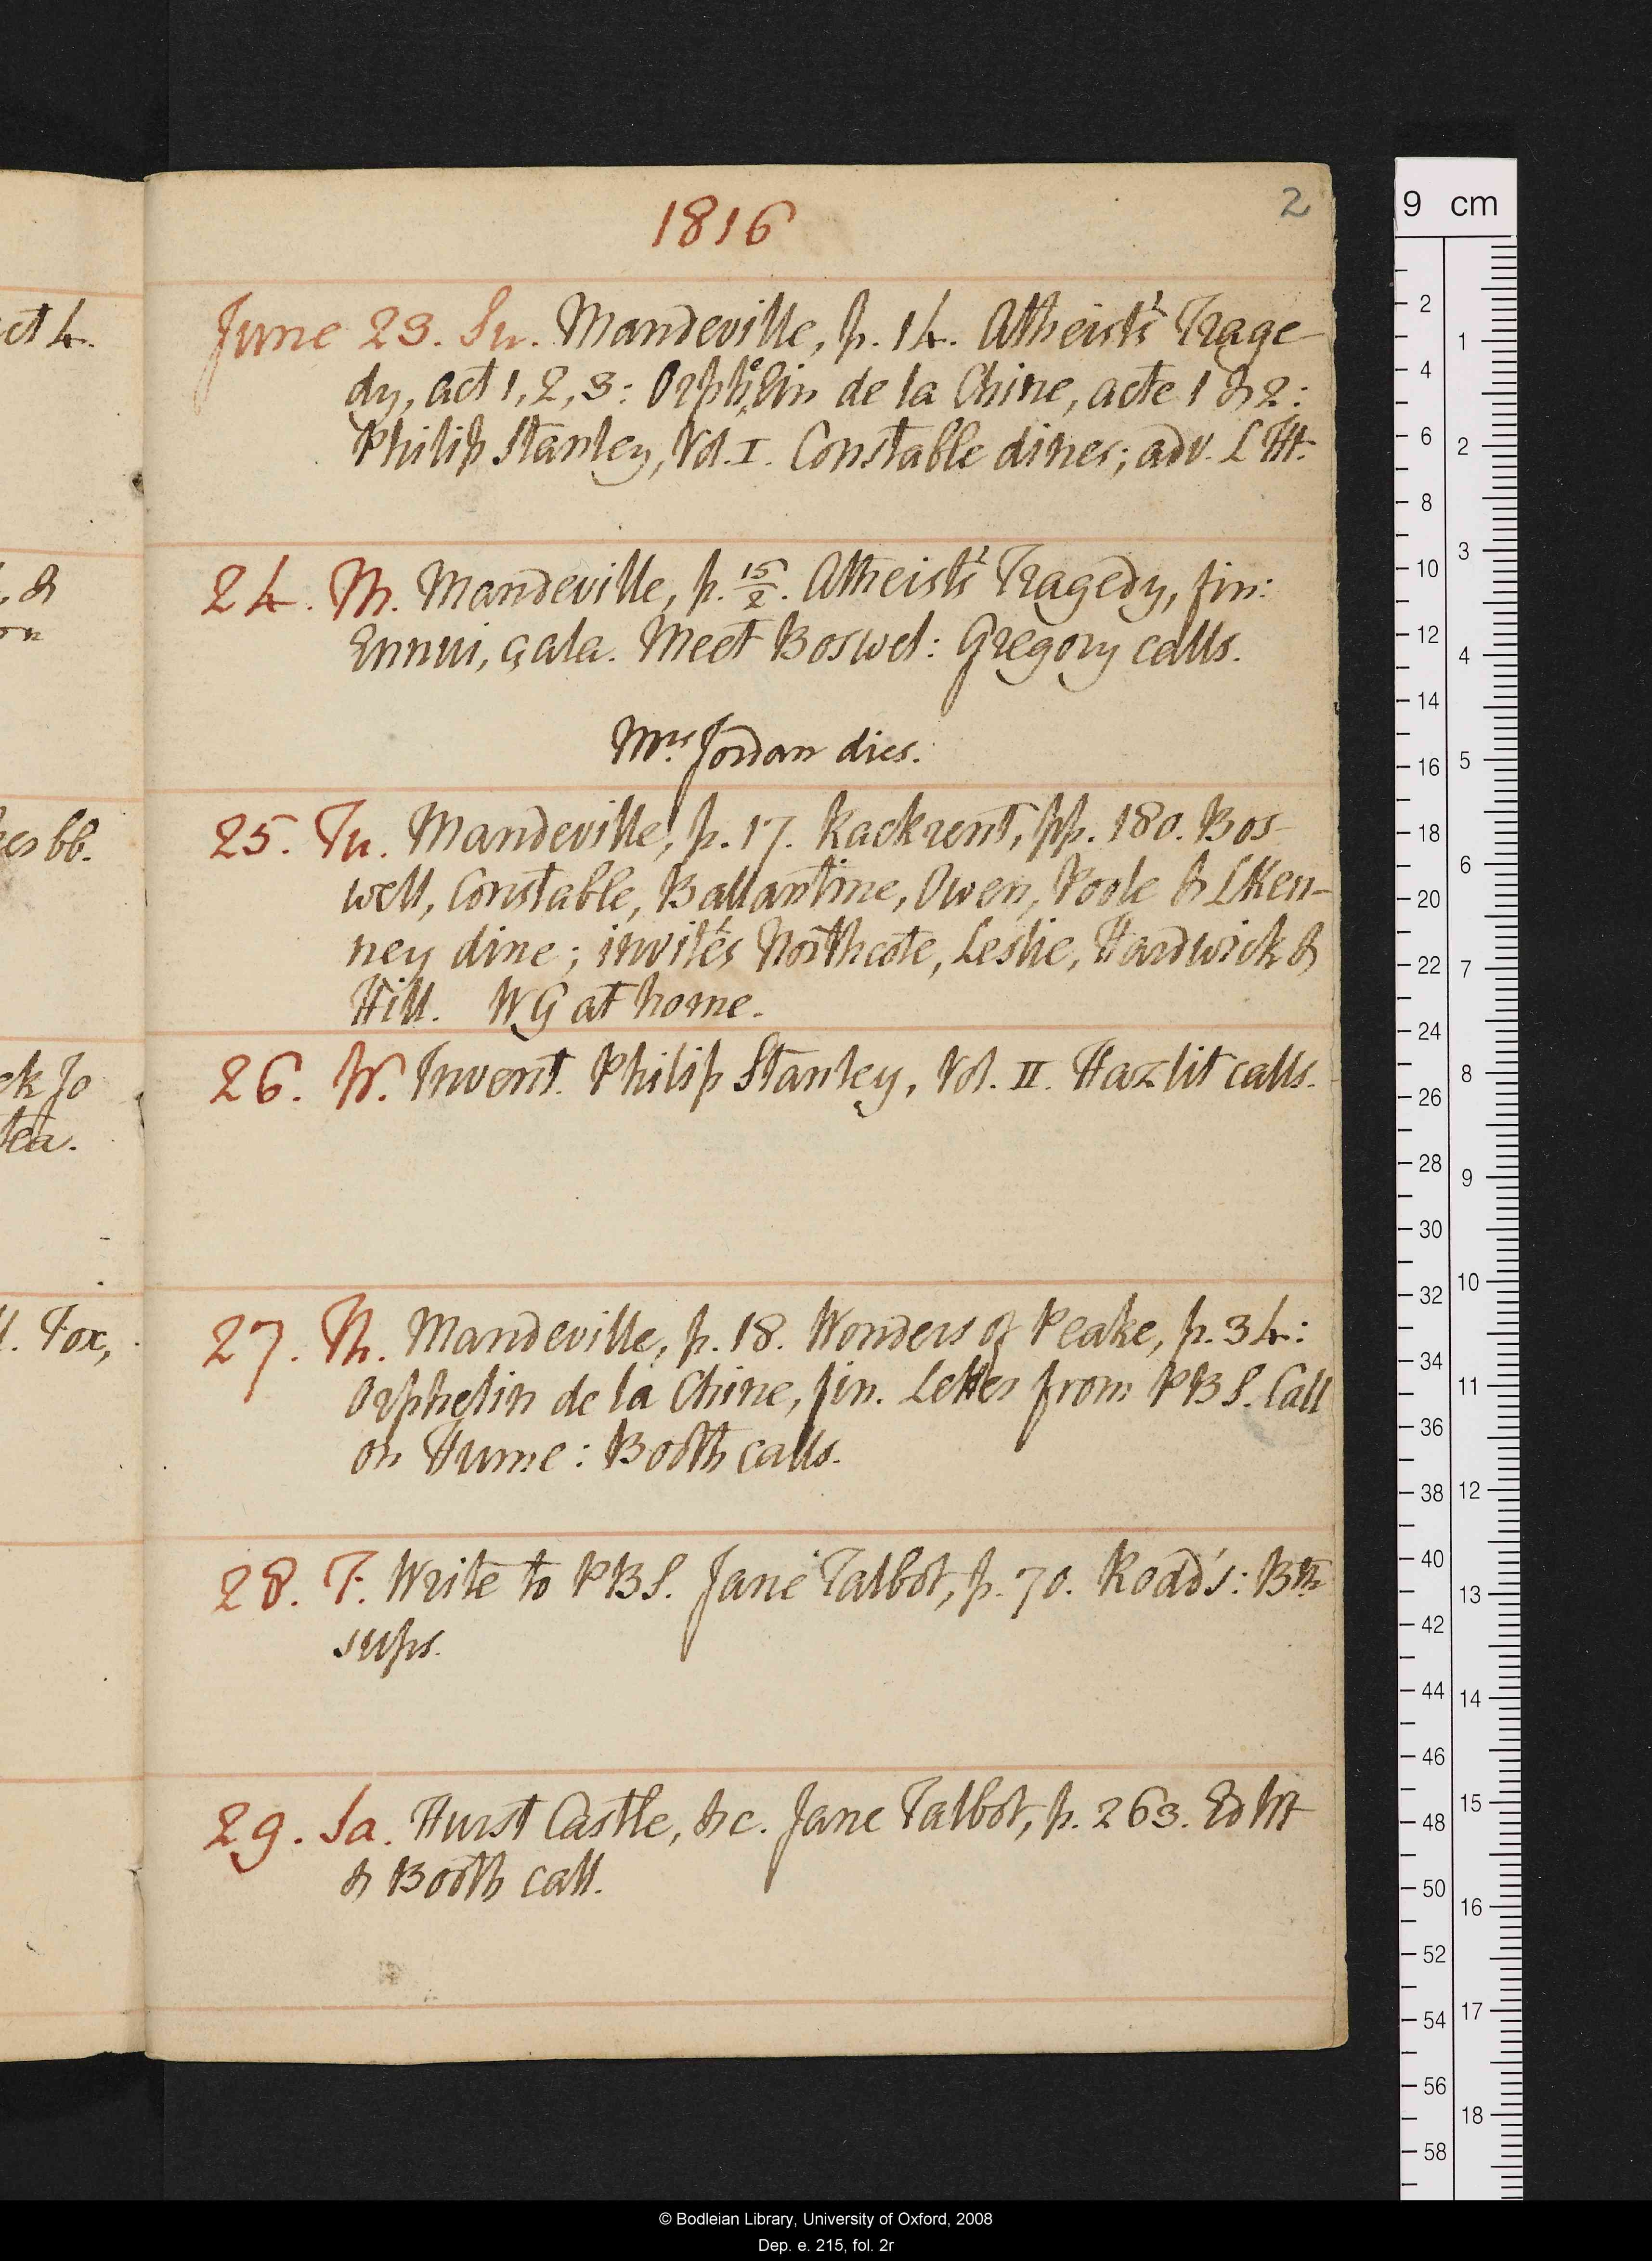 ct 4.
, &
on
es bb.
ek Jo
tea.
. Fox,
2
1816
June 23. Su. Mandeville, p. 14. Atheist's Trage-
dy, act 1, 2, 3: Orphelin de la Chine, acte 1 & 2:
Philip Stanley, Vol. I. Constable dines; adv. L Ht.
24. M. Mandeville, p. 15/2. Atheist's Tragedy, fin:
Ennui, çala. Meet Boswel: Gregory calls.
Mrs Jordan dies.
25. Tu. Mandeville, p. 17. Rackrent, pp. 180. Bos-
well, Constable, Ballantine, Owen, Poole & LKen-
ney dine; invités Northcote, Leslie, Hardwick &
Hill. WG at home.
26. W. Invent. Philip Stanley, Vol. II. Hazlit calls.
27. Th. Mandeville, p. 18. Wonders of Peake, p. 34:
Orphelin de la Chine, fin. Letter from PBS. Call
on Hume: Booth calls.
28. F. Write to PBS. Jane Talbot, p. 70. Rodd's: Bth
sups.
29. Sa. Hurst Castle, &c. Jane Talbot, p. 263. Ed Ht
& Booth call.
9 cm
2
4
6
8
10
12
14
16
18
20
22
24
26
28
30
32
34
36
38
40
42
44
46
48
50
52
54
56
58
1
2
3
4
5
6
7
8
9
10
11
12
13
14
15
16
17
18
© Bodleian Library, University of Oxford, 2008
Dep. e. 215, fol. 2r